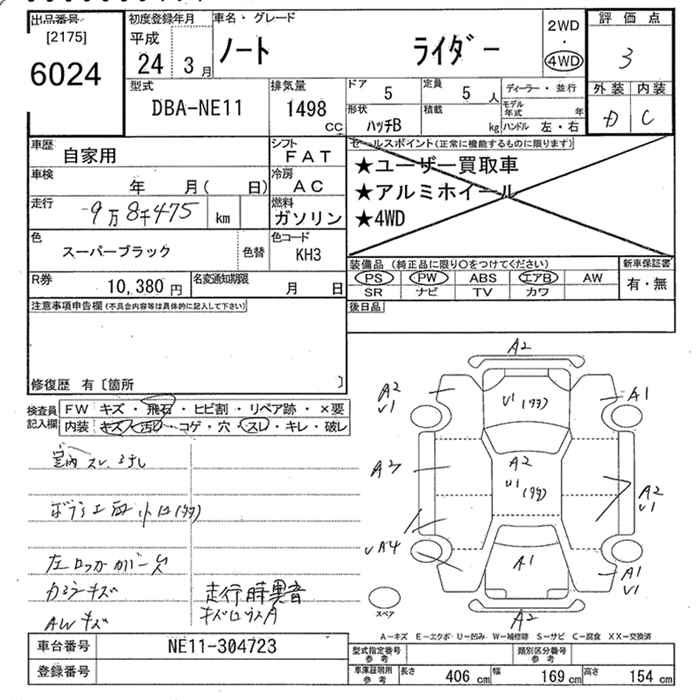 出品番号
[2175]
6024
初度登録年月
平成
24 3 月
車名・グレード
ノート ライダー
2WD
・
4WD
評価点
3
外装 内装
D C
型式
DBA-NE11
排気量
1498
CC
ドア
5
定員
5 人
形状
ハッチB
積載
kg
ディーラー・並行
モデル年式 年
ハンドル 左・右
車歴
自家用
シフト
FAT
車検
年 月( 日)
冷房
AC
走行
9万8千475 km
燃料
ガソリン
色
スーパーブラック
色替
色コード
KH3
R券
10,380 円
名変通知期限
月 日
セールスポイント(正常に機能するものに限ります)
★ユーザー買取車
★アルミホイール
★4WD
装備品 (純正品に限り○をつけてください)
PS PW ABS エアB AW
SR ナビ TV カワ
新車保証書
有・無
後日品
注意事項申告欄(不具合内容等は具体的に記入して下さい)
修復歴 有〔箇所 〕
検査員記入欄
FW キズ・飛石・ヒビ割・リペア跡・×要
内装 キズ・汚れ・コゲ・穴・スレ・キレ・破レ
室内 スレ
左ロッカーカバーキズ
AWキズ
走行時異音
A2
A2
U1
U1
A1
A2
A2
U1
A2
U1
A4
A1
A1
U1
A2
スペア
A-キズ E-エクボ U-凹み W-補修跡 S-サビ C-腐食 XX-交換済
車台番号
NE11-304723
登録番号
型式指定番号
参考
類別区分番号
参考
車庫証明用
参考
長さ 406 cm 幅 169 cm 高さ 154 cm